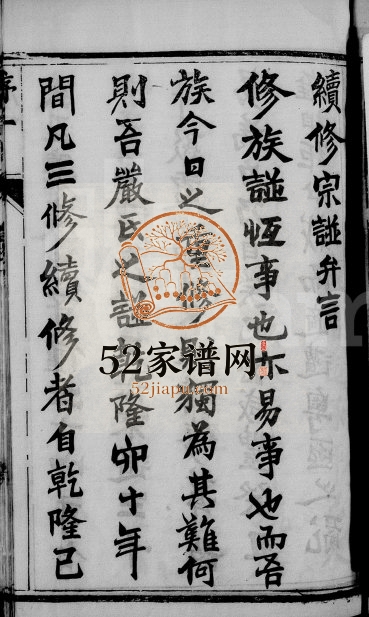 續修宗譜弁言
修族譜恆事也亦易事也而吾
族今日之重修獨為其難何
則吾嚴氏之譜乾隆卯十年
間凡三修續修者自乾隆己
序一
52家谱网
52jiapu.com